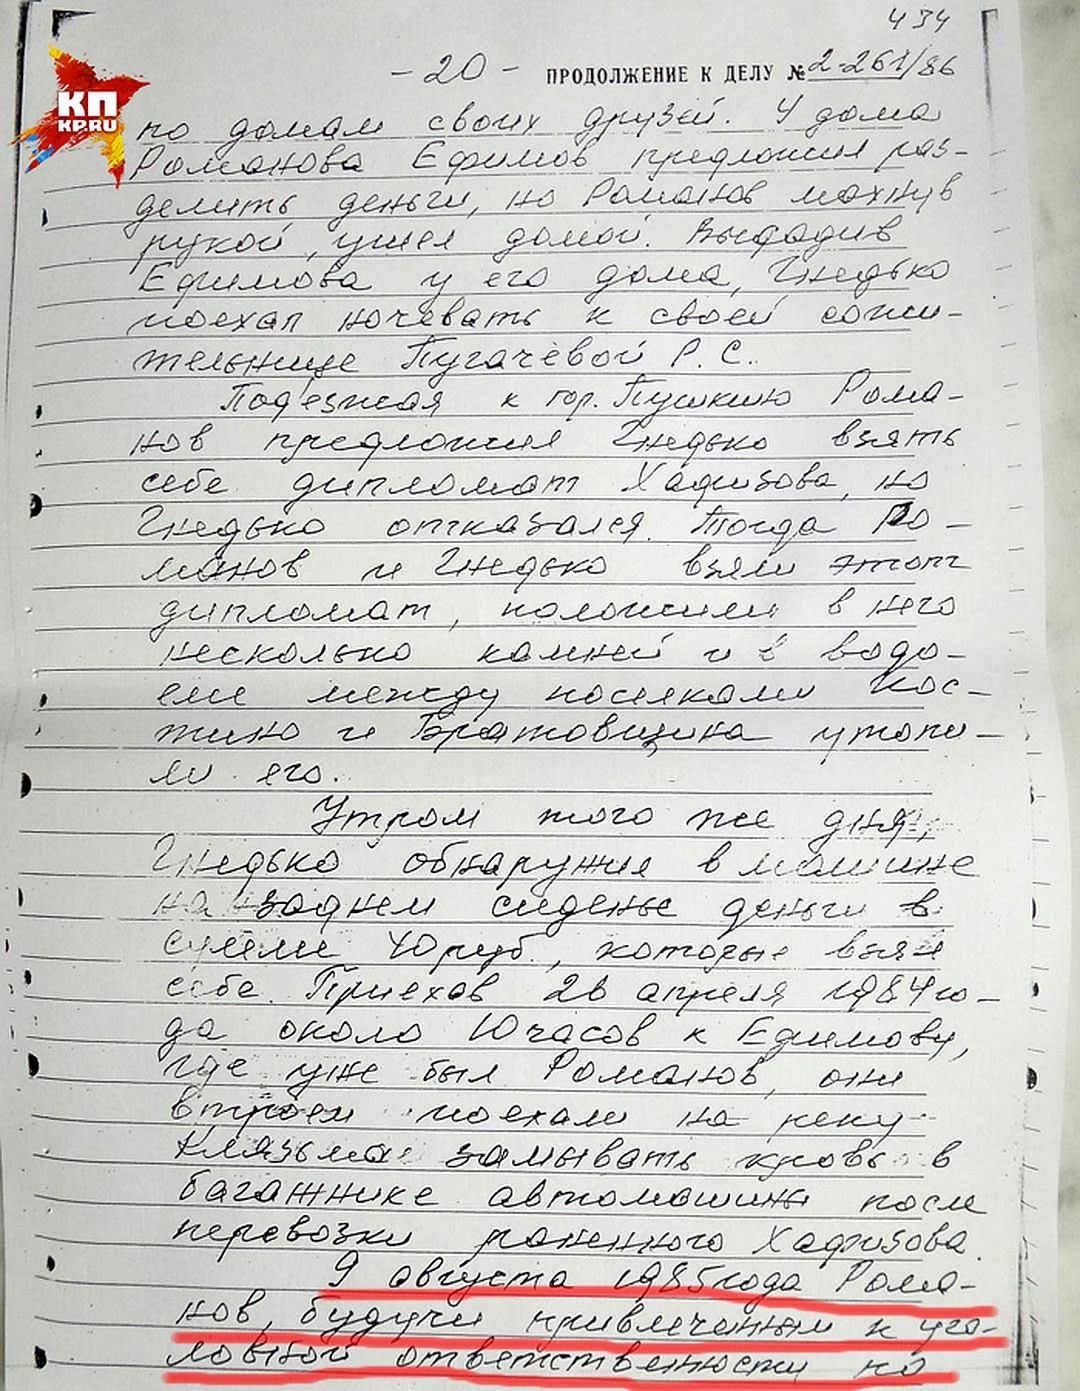 434
- 20 - ПРОДОЛЖЕНИЕ К ДЕЛУ № 2-261/86
КП
KP.RU
по домам своих друзей. У дома
Романова Ефимов предложил раз-
делить деньги, но Романов махнув
рукой, ушел домой. Высадив
Ефимова у его дома, Гнедько
поехал ночевать к своей сожи-
тельнице Пугачевой Р. С.
Подъезжая к гор. Пушкино Рома-
нов предложил Гнедько взять
себе дипломат Хафизова, но
Гнедько отказался. Тогда Ро-
манов и Гнедько взяли этот
дипломат, положили в него
несколько камней и в водо-
еме между поселками Кос-
тино и Братовщина утопи-
ли его.
Утром того же дня,
Гнедько обнаружил в машине
на заднем сиденье деньги в
сумме 40 руб., которые взял
себе. Приехав 26 апреля 1984 го-
да около 10 часов к Ефимову,
где уже был Романов, они
втроем поехали на реку
Клязьма замывать кровь в
багажнике автомашины после
перевозки раненного Хафизова.
9 августа 1985 года Рома-
нов, будучи привлеченным к уго-
ловной ответственности по